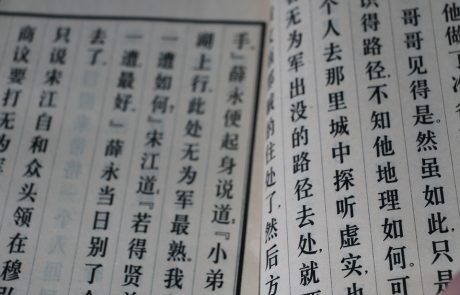 他做了
哥哥见得是。然虽如此,只是
识得路径,不知他地理如何。可
个人去那里城中探听虚实,也
无为军出没的路径去处,就
的住处了,然后方
手。』薛永便起身说道:『小弟
湖上行,此处无为军最熟。我
一遭如何?』宋江道:『若得贤
一遭最好。』薛永当日别了
去了。
只说宋江自和众头领在穆
商议要打无为军